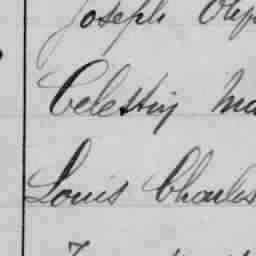 Joseph
Celestin
Louis Charles